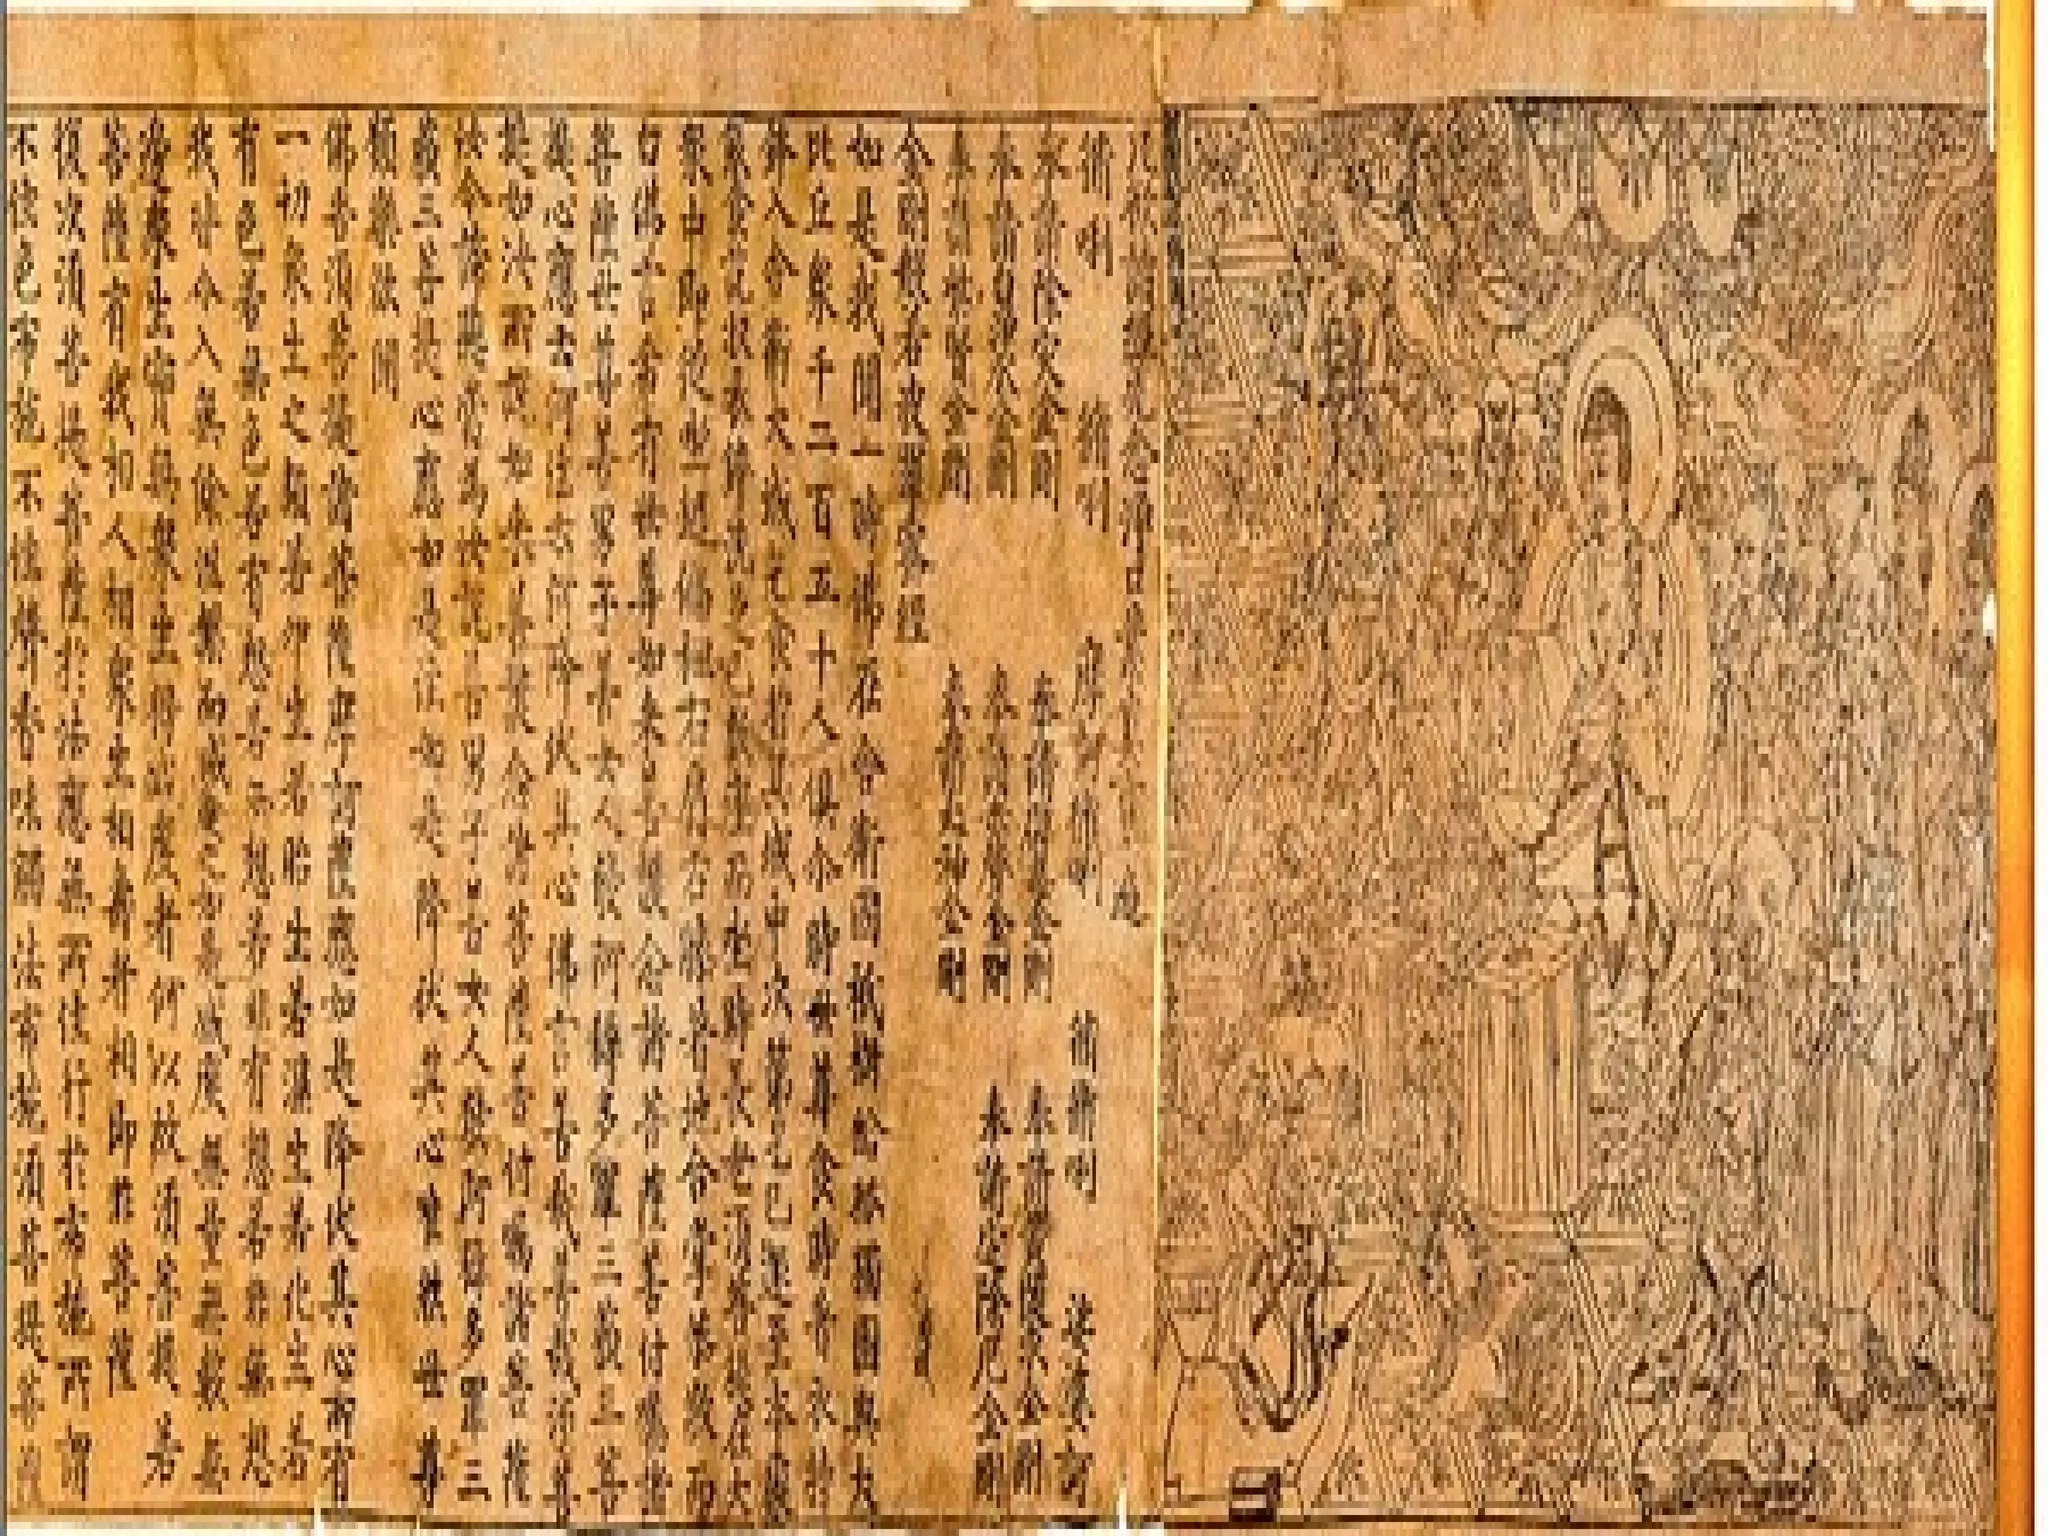 凡欲讀經先念淨口業真言一遍
脩唎 脩唎 摩訶脩唎 脩脩唎 娑婆訶
奉請除灾金剛 奉請辟毒金剛 奉請黃隨求金剛
奉請白淨水金剛 奉請赤聲金剛 奉請定除厄金剛
奉請紫賢金剛 奉請大神金剛
金剛般若波羅蜜經
如是我聞一時佛在舍衛國祇樹給孤獨園與大
比丘衆千二百五十人俱尒時世尊食時著衣持
鉢入舍衛大城乞食於其城中次第乞已還至本處
飯食訖收衣鉢洗足已敷座而坐時長老須菩提在大
衆中即從座起偏袒右肩右膝著地合掌恭敬而
白佛言希有世尊如來善護念諸菩薩善付囑諸
菩薩世尊善男子善女人發阿耨多羅三藐三菩
提心應云何住云何降伏其心佛言善哉善哉須菩
提如汝所說如來善護念諸菩薩善付囑諸菩薩
汝今諦聽當為汝說善男子善女人發阿耨多羅三
藐三菩提心應如是住如是降伏其心唯然世尊
願樂欲聞
佛告須菩提諸菩薩摩訶薩應如是降伏其心所有
一切衆生之類若卵生若胎生若濕生若化生若
有色若無色若有想若無想若非有想若非無想
我皆令入無餘涅槃而滅度之如是滅度無量無數無
邊衆生實無衆生得滅度者何以故須菩提若
菩薩有我相人相衆生相壽者相即非菩薩
復次須菩提菩薩於法應無所住行於布施所謂
不住色布施不住聲香味觸法布施須菩提菩薩